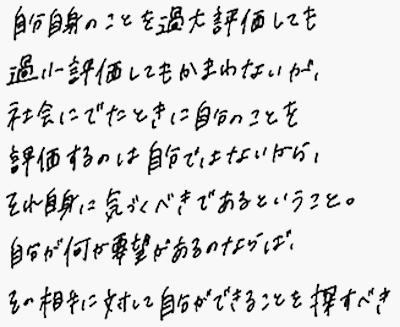 自分自身のことを過大評価しても
過小評価してもかまわないが、
社会にでたときに自分のことを
評価するのは自分ではないから、
それ自身に気づくべきであるということ。
自分が何か要望があるのならば、
その相手に対して自分ができることを探すべき